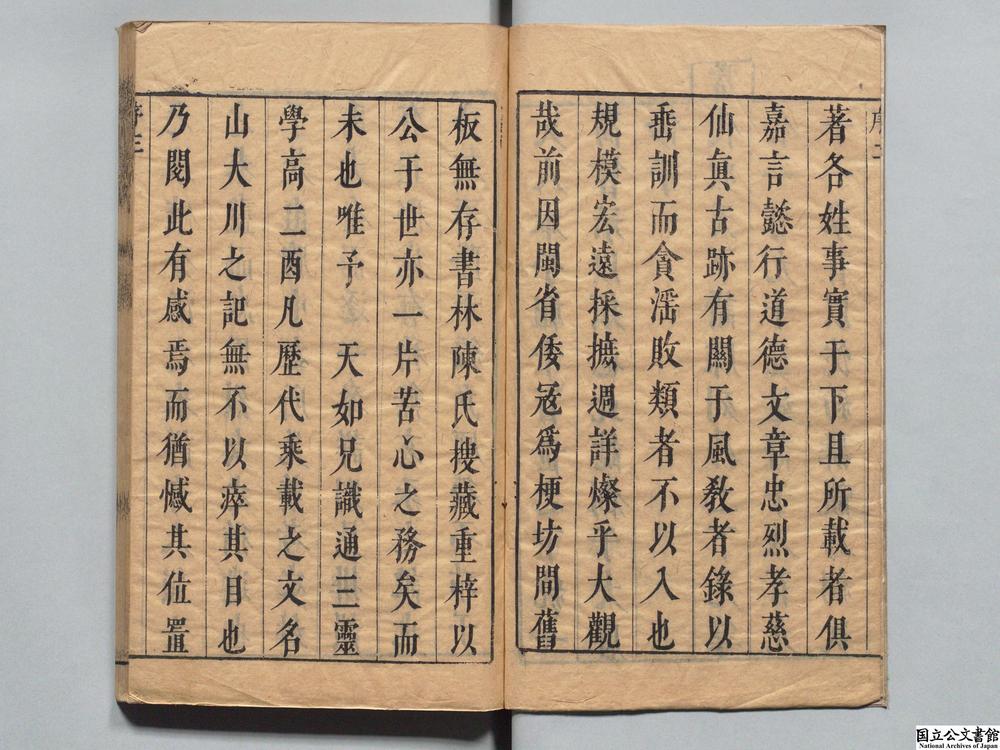 著各姓事實于下且所載者俱
嘉言懿行道德文章忠烈孝慈
仙眞古跡有關于風敎者錄以
垂訓而貪淫敗類者不以入也
規模宏遠採摭週詳燦乎大觀
哉前因閩省倭冦爲梗坊間舊
板無存書林陳氏搜藏重梓以
公于世亦一片苦心之務矣而
未也唯予 天如兄識通三靈
學高二酉凡歷代乘載之文名
山大川之記無不以瘁其目也
乃閱此有感焉而猶憾其位置
序三
国立公文書館
National Archives of Japan